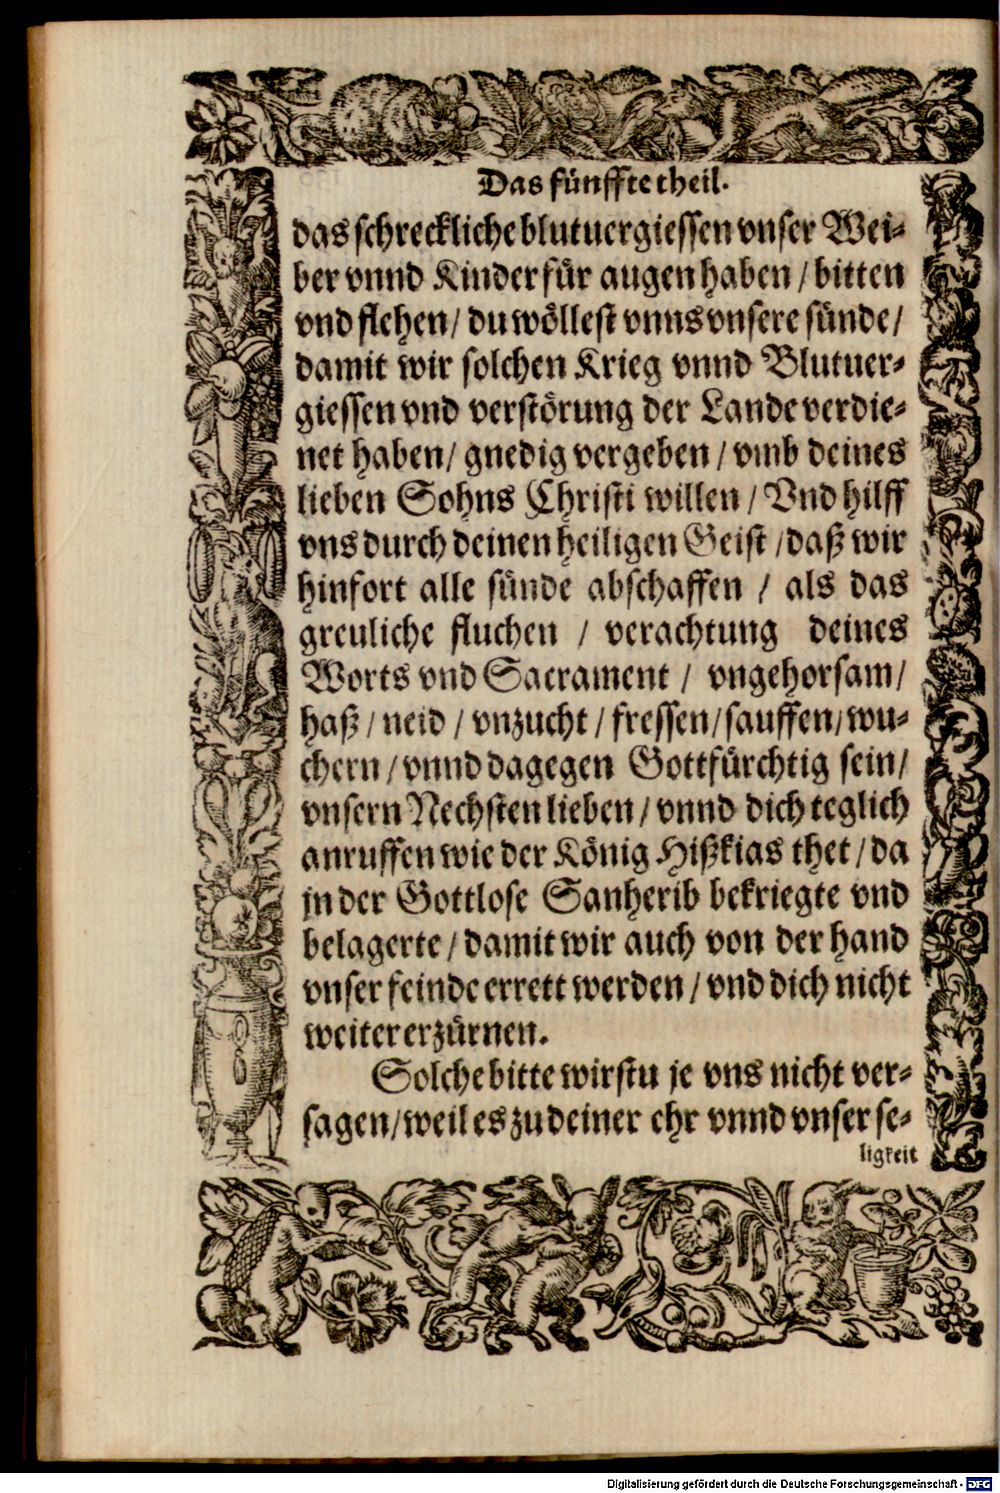 Das fünffte theil.
das schreckliche blutuergiessen vnser Wei-
ber vnnd Kinder für augen haben / bitten
vnd flehen / du wöllest vnns vnsere sünde /
damit wir solchen Krieg vnnd Blutuer-
giessen vnd verstörung der Lande verdie-
net haben / gnedig vergeben / vmb deines
lieben Sohns Christi willen / Vnd hilff
vns durch deinen heiligen Geist / daß wir
hinfort alle sünde abschaffen / als das
greuliche fluchen / verachtung deines
Worts vnd Sacrament / vngehorsam /
haß / neid / vnzucht / fressen / sauffen / wu-
chern / vnnd dagegen Gottfürchtig sein /
vnsern Nechsten lieben / vnnd dich teglich
anruffen wie der König Hißkias thet / da
jn der Gottlose Sanherib bekriegte vnd
belagerte / damit wir auch von der hand
vnser feinde errett werden / vnd dich nicht
weiter erzürnen.
Solche bitte wirstu je vns nicht ver-
sagen / weil es zu deiner ehr vnnd vnser se-
ligkeit
Digitalisierung gefördert durch die Deutsche Forschungsgemeinschaft - DFG